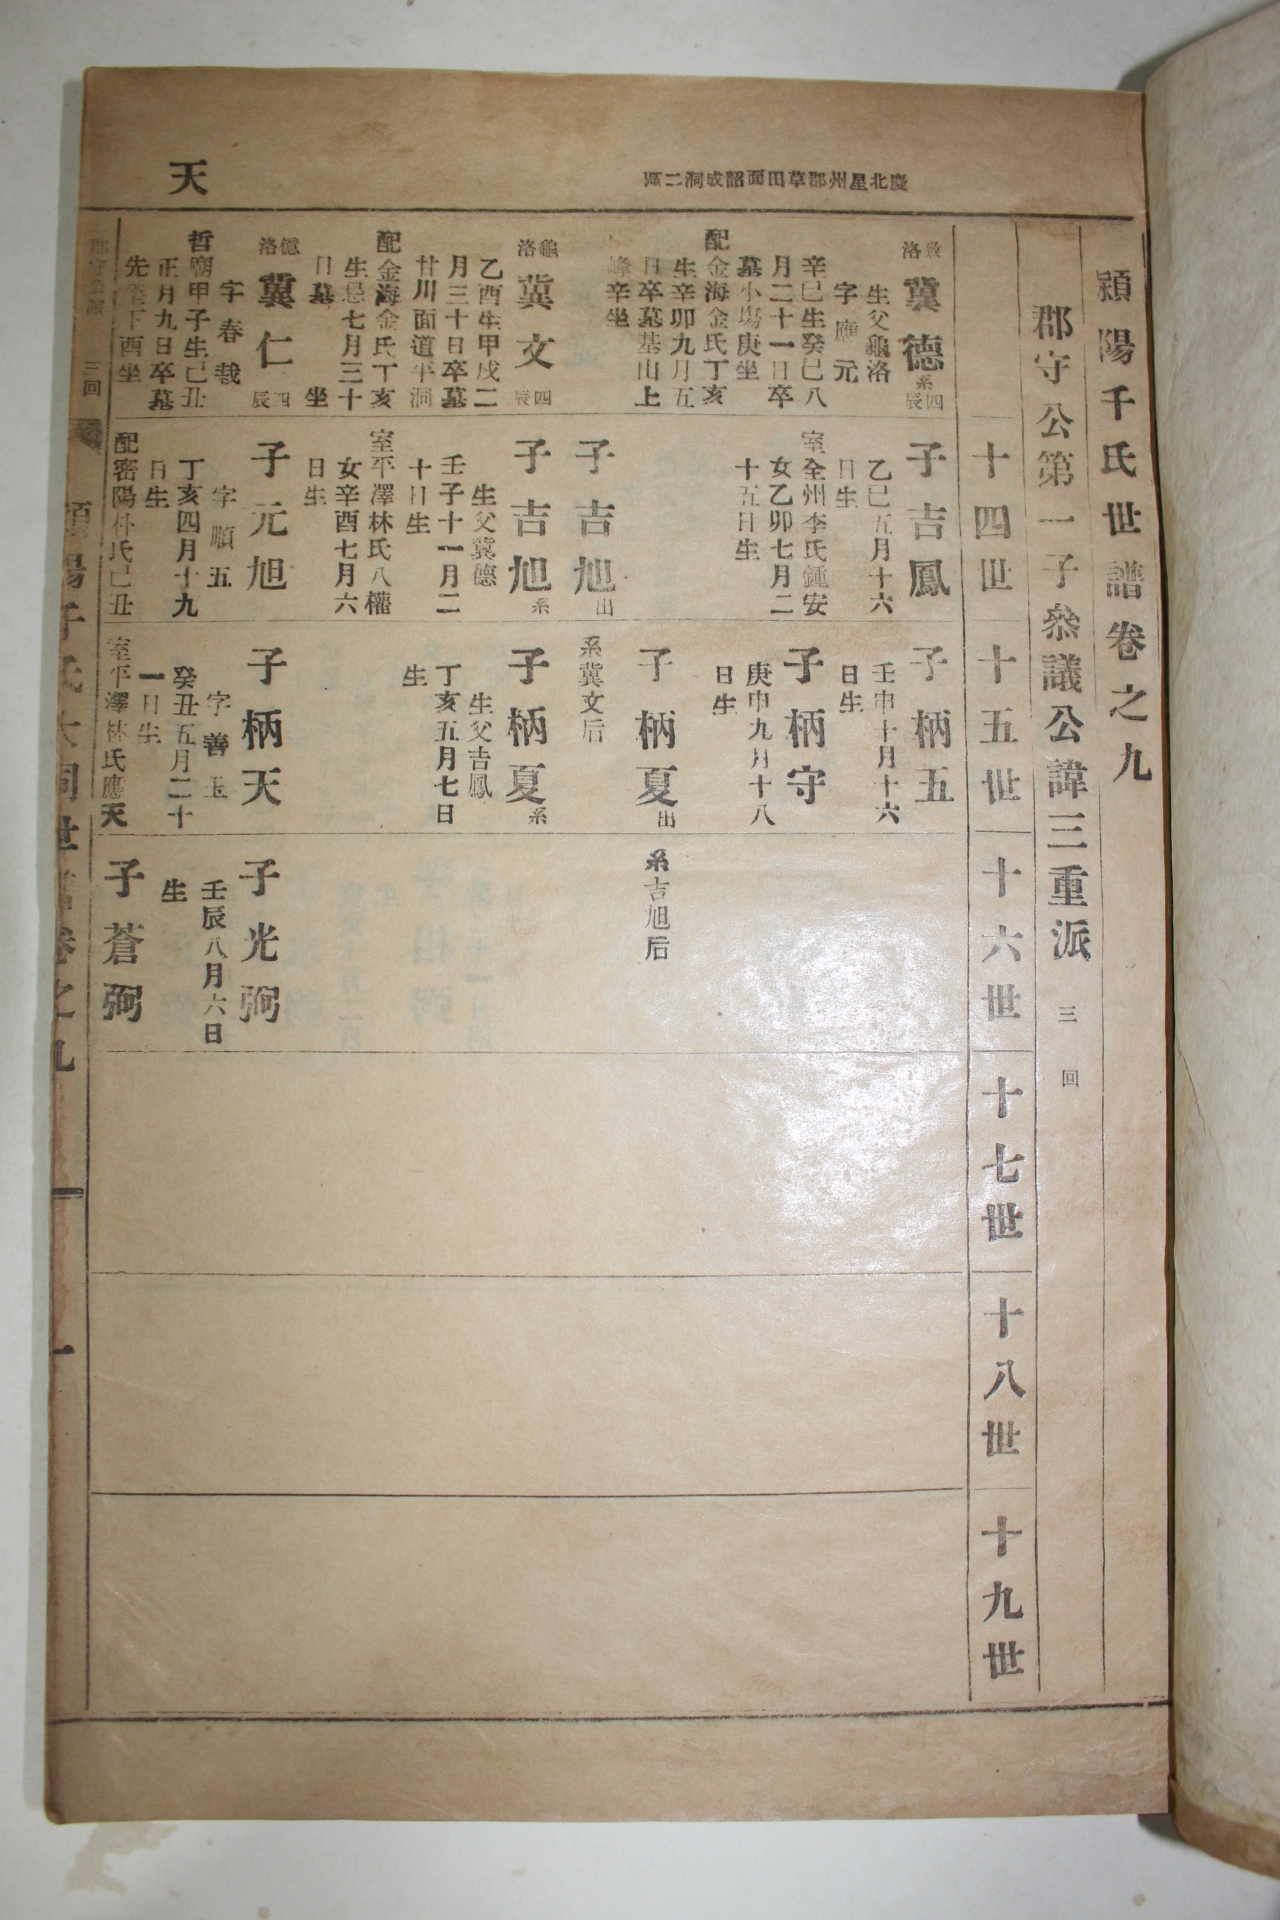 慶北星州郡草田面韶成洞二區
天
潁陽千氏世譜卷之九
郡守公第一子叅議公諱三重派 三回
十四世
十五世
十六世
十七世
十八世
十九世
洛
冀德 系四辰
生父龜洛
字應元
辛巳生癸巳八
月二十一日卒
墓小塢庚坐
配金海金氏丁亥
生辛卯九月五
日卒墓基山上
峰辛坐
龜洛
冀文 四辰
乙酉生甲戌二
月三十日卒墓
甘川面道平洞
配金海金氏丁亥
生忌七月三十
日墓 坐
億洛
冀仁 四辰
字春載
哲廟甲子生己丑
正月九日卒墓
先塋下酉坐
子吉鳳
乙巳五月十六
日生
室全州李氏鍾安
女乙卯七月二
十五日生
子吉旭 出
系冀文后
子吉旭 系
生父冀德
壬子十一月二
十日生
室平澤林氏八權
女辛酉七月六
日生
子元旭
字順五
丁亥四月十九
日生
配密陽朴氏己丑
子柄五
壬申十月十六
日生
子柄守
庚申九月十八
日生
子柄夏 出
系吉旭后
子柄夏 系
生父吉鳳
丁亥五月七日
生
子柄天
字善玉
癸丑五月二十
一日生
室平澤林氏應天
子光弼
壬辰八月六日
生
子蒼弼
郡守公派 三回
潁陽千氏大同世譜卷之九
一